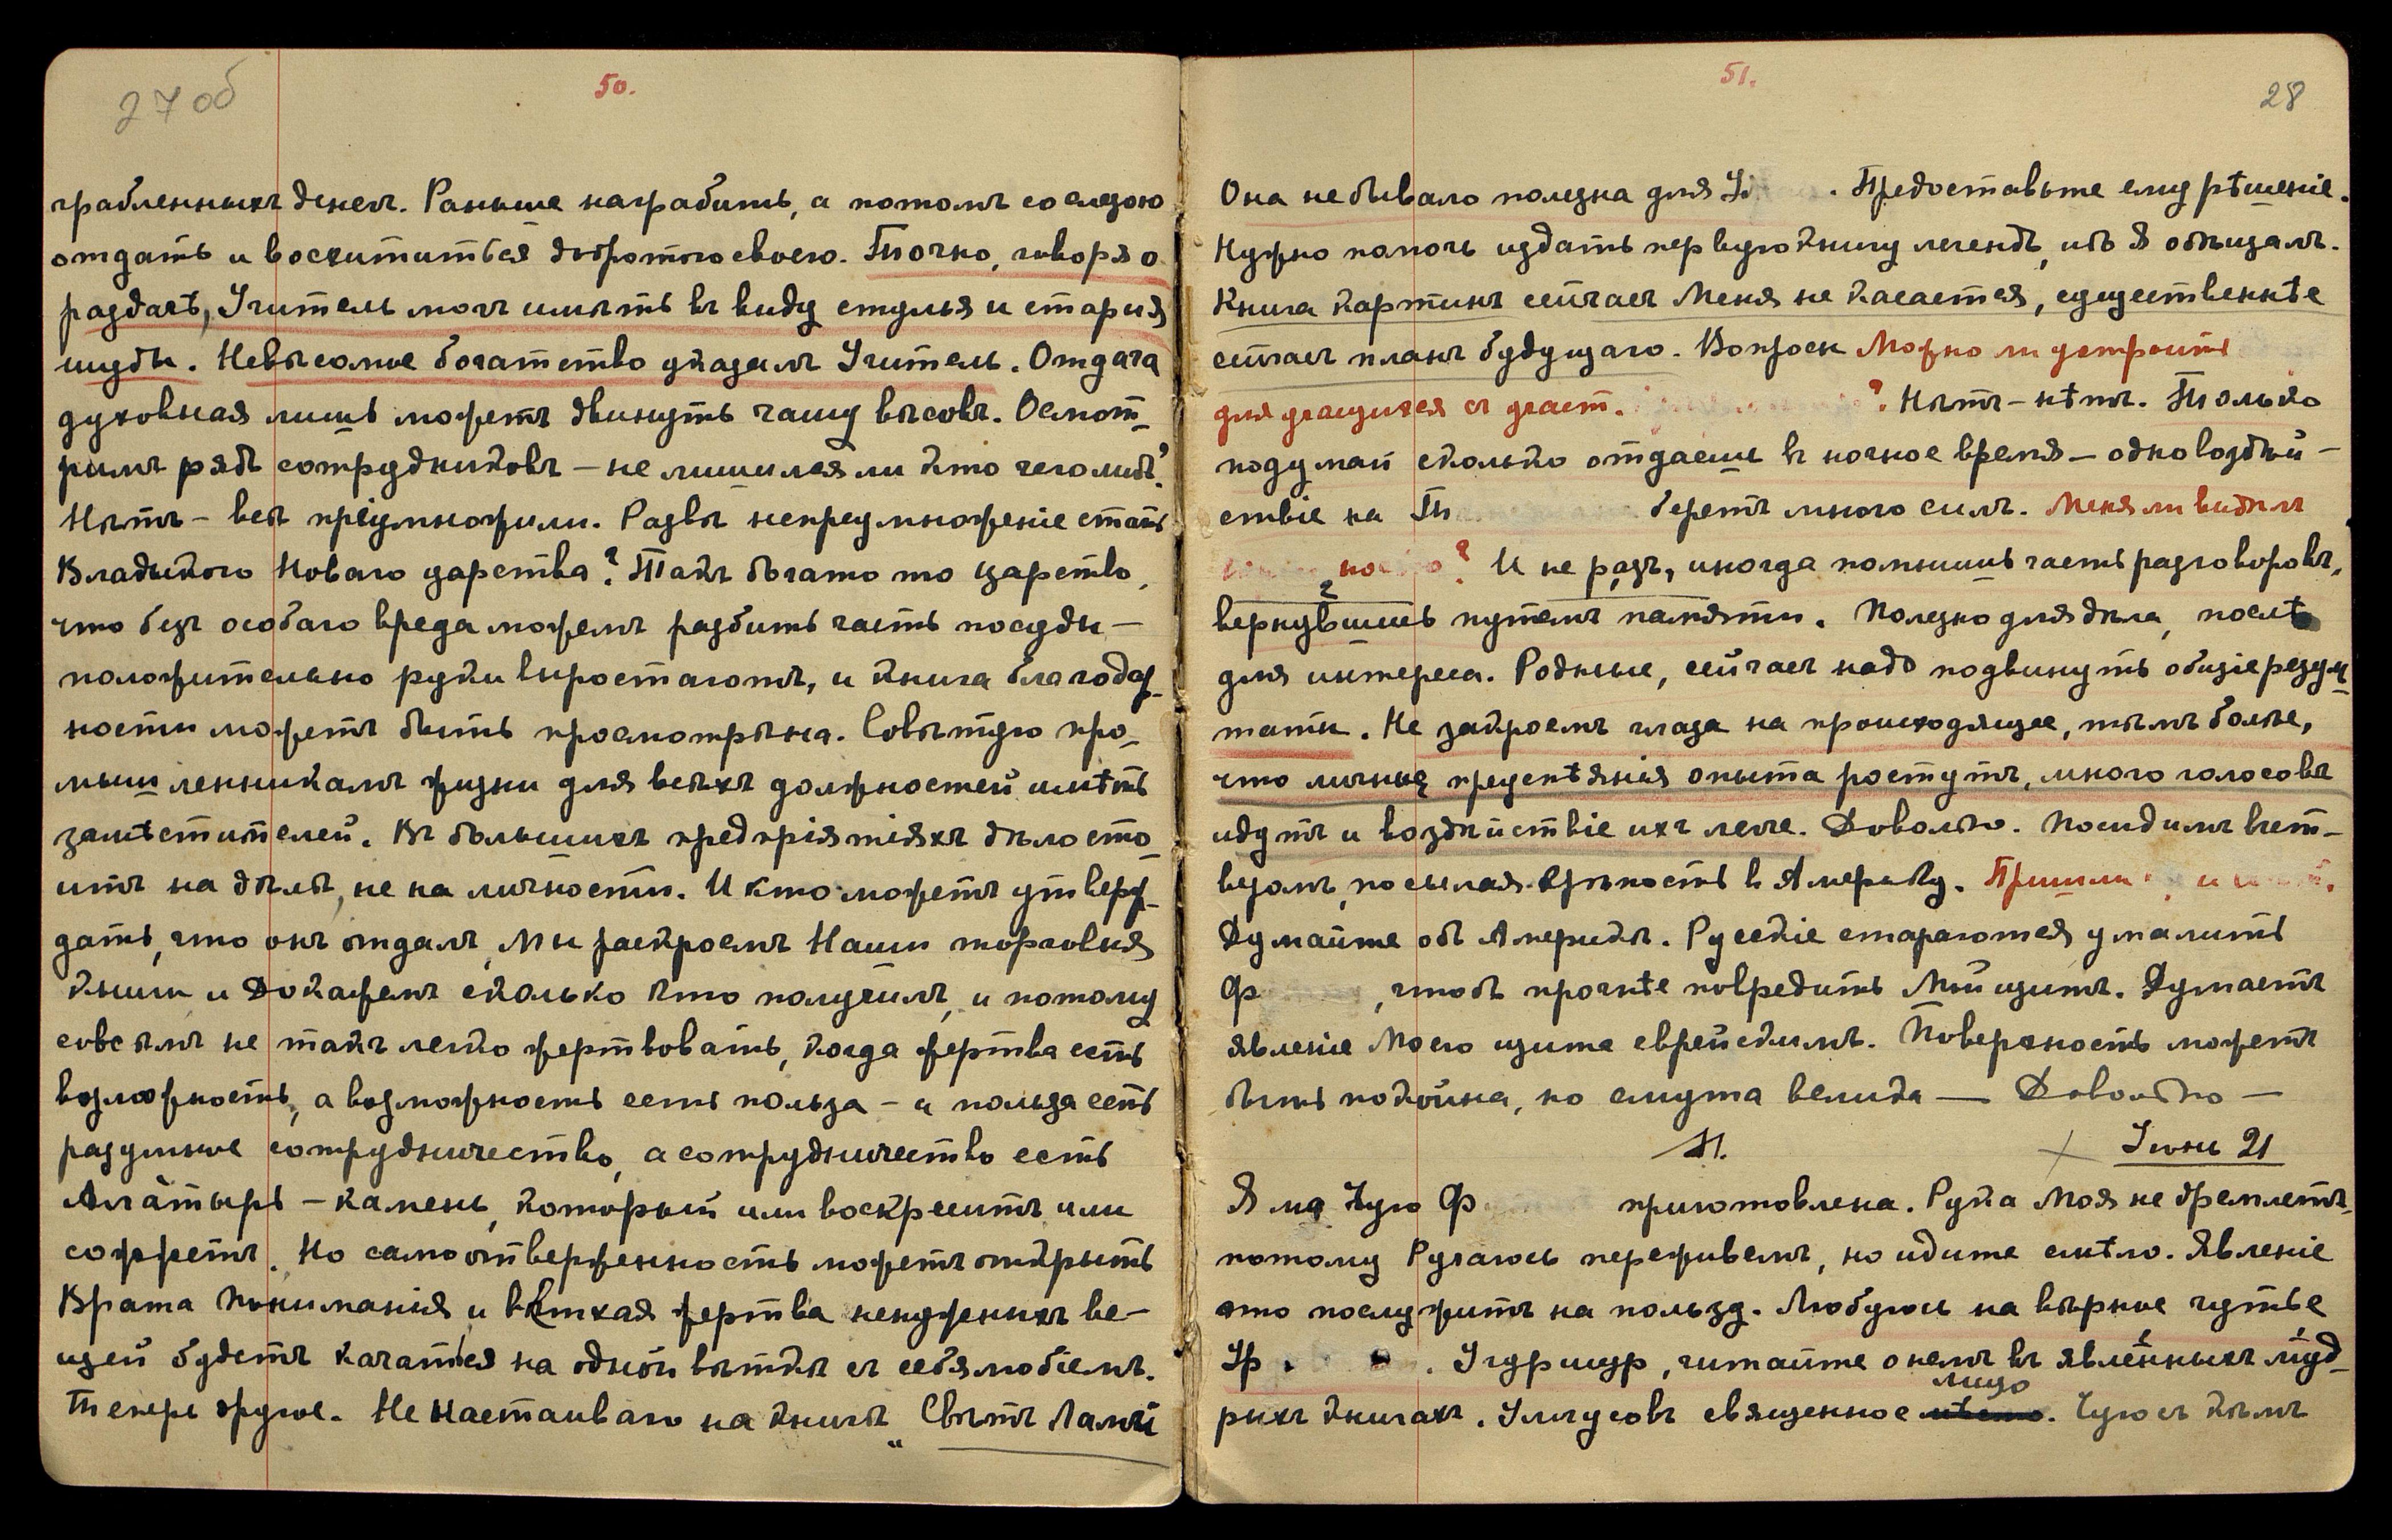 27об
50.
грабленныхъ денегъ. Раньше награбить, а потомъ со слезою
отдать и восхититься добротою своею. Точно, говоря о
раздаче, Учитель могъ имѣть въ виду стулья и старыя
шубы. Невѣсомые богатство указалъ Учитель. Отдача
духовная лишь можетъ двинуть чашу вѣсовъ. Осмот-
римъ рядъ сотрудниковъ – не лишился ли кто чего либо?
Нѣтъ – всѣ пріумножили. Развѣ непреумноженіе стать
Владыкою Новаго царства? Такъ богато то царство,
что безъ особаго вреда можемъ разбить часть посуды –
положительно руки выростаютъ, и книга благодар-
ности можетъ быть просмотрѣна. Совѣтую про-
мышленникамъ жизни для всѣхъ должностей имѣть
замѣстителей. Въ большихъ предпріятіяхъ дѣло сто-
итъ на дѣлѣ, не на личности. И кто можетъ утверж-
дать, что онъ отдалъ, Мы раскроемъ Наши торговыя
книги и Докажемъ сколько кто получилъ, и потому
совсѣмъ не такъ легко жертвовать, когда жертва есть
возможность, а возможность есть польза – и польза есть
разумное сотрудничество, а сотрудничество есть
Алатырь – камень, который или воскреситъ или
сожжетъ. Но самоотверженность можетъ открыть
Врата Пониманія и ветхая жертва ненужныхъ ве-
щей будетъ качаться на одной вѣткѣ съ себялюбіемъ.
Теперь другое. Не Настаиваю на книгѣ „Свѣтъ Ламъ
51.
28
Она небывало полезна для У. Предоставьте ему рѣшеніе.
Нужно помочь издать первую книгу легендъ, ибъ Я обѣщалъ.
Книга картинъ сейчасъ Меня не касается, существеннѣе
сейчасъ планъ будущаго. Вопросы Можно ли устроить
для учащихся съ участ. ? Нѣтъ – нѣтъ. Только
подумай сколько отдаешь въ ночное время – одно воздѣй-
ствіе на Т беретъ много силъ. Меня ли видѣлъ
? И не разъ, иногда помнишь часть разговоровъ,
вернувшись путемъ памяти. Полезно для дѣла, послѣ
для интереса. Родные, сейчасъ надо подвинуть общіе резуль-
таты. Не закроемъ глаза на происходящее, тѣмъ болѣе,
что личные опыта ростутъ, много голосовъ
идутъ и воздѣйствіе ихъ легче. Довольно. Посидимъ вчет-
вуомъ, посылая крѣпость въ Америку. Пришли и
Думайте объ Америкѣ. Русскіе стараются умалить
Ф , чтобъ прочнѣе повредить Мой щитъ. Думаетъ
явленіе Моего щита еврейскимъ. Поверхность можетъ
быть покойна, но смута велика — Довольно —
М.
Іюнь 21
Яма Чую Ф приготовлена. Рука Моя не дремлетъ,
потому Ручаюсь переживемъ, но идите смѣло. Явленіе
это послужитъ на пользу. Любуюсь на вѣрное чутье
Уф . Учурмур, читайте о немъ въ явленныхъ муд-
рыхъ книгахъ. Улчусовъ священное лицо. Чую съ кѣмъ